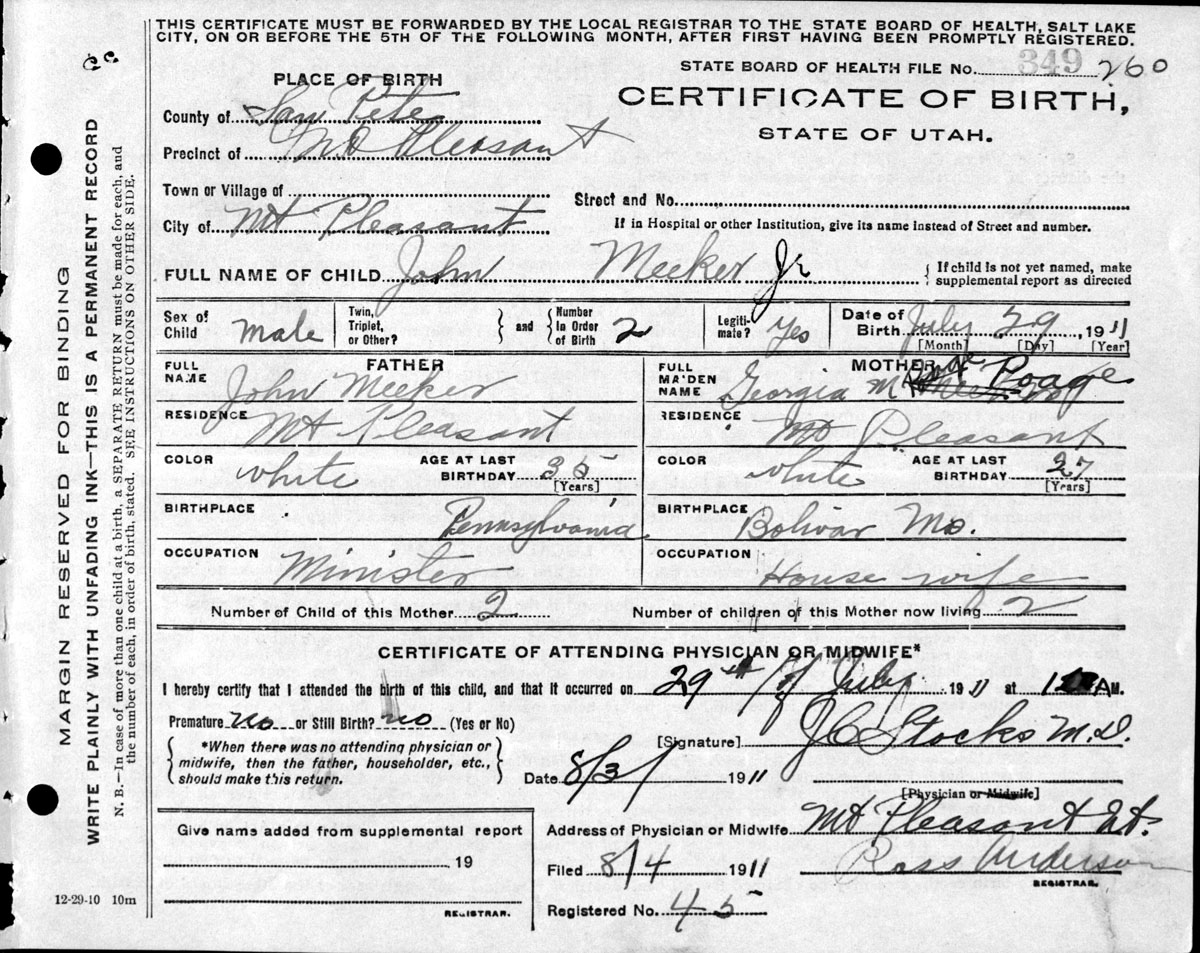 THIS CERTIFICATE MUST BE FORWARDED BY THE LOCAL REGISTRAR TO THE STATE BOARD OF HEALTH, SALT LAKE
CITY, ON OR BEFORE THE 5TH OF THE FOLLOWING MONTH, AFTER FIRST HAVING BEEN PROMPTLY REGISTERED.
PLACE OF BIRTH
STATE BOARD OF HEALTH FILE No. 349 260
CERTIFICATE OF BIRTH,
STATE OF UTAH.
County of San Pete
Precinct of Mt Pleasant
Town or Village of
Street and No.
City of Mt Pleasant
If in Hospital or other Institution, give its name instead of Street and number.
FULL NAME OF CHILD John Meeker Jr
{ If child is not yet named, make
supplemental report as directed
Sex of Child Male
Twin, Triplet, or Other? } and { Number In Order of Birth 2
Legiti-mate? Yes
Date of Birth July 29 1911
[Month] [Day] [Year]
FATHER
MOTHER
FULL NAME John Meeker
FULL MAIDEN NAME Georgia M Poage
RESIDENCE Mt Pleasant
RESIDENCE Mt Pleasant
COLOR white AGE AT LAST BIRTHDAY 35 [Years]
COLOR white AGE AT LAST BIRTHDAY 27 [Years]
BIRTHPLACE Pennsylvania
BIRTHPLACE Bolivar Mo.
OCCUPATION Minister
OCCUPATION House wife
Number of Child of this Mother 2
Number of children of this Mother now living 2
CERTIFICATE OF ATTENDING PHYSICIAN OR MIDWIFE*
I hereby certify that I attended the birth of this child, and that it occurred on 29th of July 1911 at A M.
Premature no or Still Birth? no (Yes or No)
{ *When there was no attending physician or
midwife, then the father, householder, etc.,
should make this return. }
[Signature] J C Stocks M.D.
Date 8/3/ 1911
[Physician or Midwife]
Give name added from supplemental report
19
REGISTRAR.
Address of Physician or Midwife Mt Pleasant Ut.
Filed 8/4 1911 Ross Anderson
REGISTRAR.
Registered No. 45
12-29-10 10m
MARGIN RESERVED FOR BINDING
WRITE PLAINLY WITH UNFADING INK—THIS IS A PERMANENT RECORD
N. B.—In case of more than one child at a birth, a SEPARATE RETURN must be made for each, and
the number of each, in order of birth, stated. SEE INSTRUCTIONS ON OTHER SIDE.